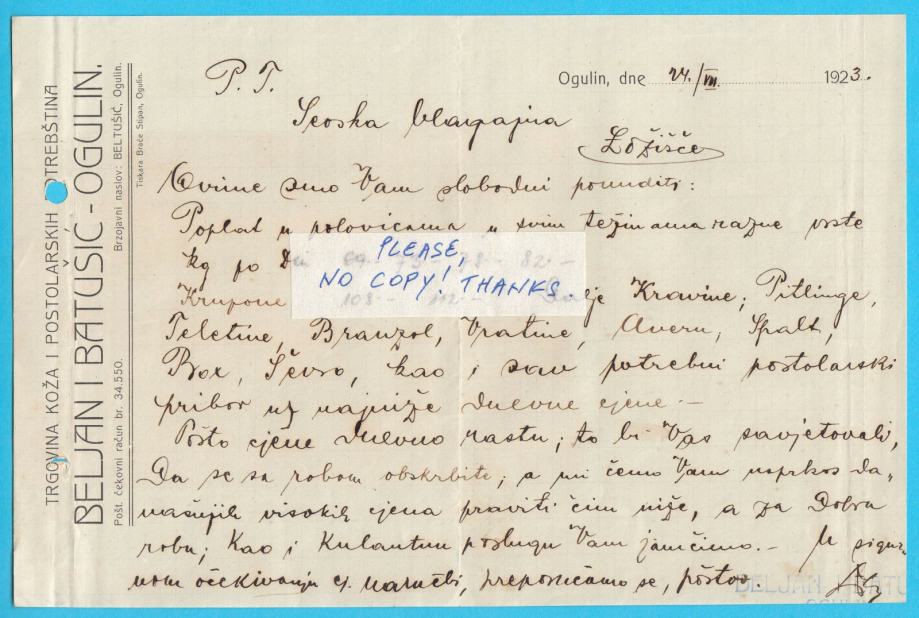 TRGOVINA KOŽA I POSTOLARSKIH POTREBŠTINA
BELJAN I BATUŠIĆ - OGULIN.
Pošt. čekovni račun br. 34.550. Brzojavni naslov: BELTUŠIĆ, Ogulin.
Tiskara Braće Stipan, Ogulin.
P. T. Ogulin, dne 24./VII. 1923.
Seoska blagajna
Ložišće
Ovime smo Vam slobodni ponuditi:
Poplat u polovicama u svim težinama razne vrste
kg po Din 69 - 75 - 78 - 82 -
PLEASE,
NO COPY! THANKS.
Krupone 108 - 112 - Dalje Kravine, Pitlinge,
Teletine, Branzol, Vratine, Avern, Spalt,
Box, Ševro, kao i sav potrebni postolarski
pribor uz najniže dnevne cjene. -
Pošto cjene dnevno rastu, to bi Vas savjetovali,
Da se sa robom obskrbite, a mi ćemo Vam usprkos da-
našnjih visokih cjena praviti čim niže, a za Dobru
robu, kao i Kulantnu poslugu Vam jamčimo. - U sigur-
nom očekivanju cj. naručbi, preporučamo se, poštov.
BELJAN I BATU
OGULIN